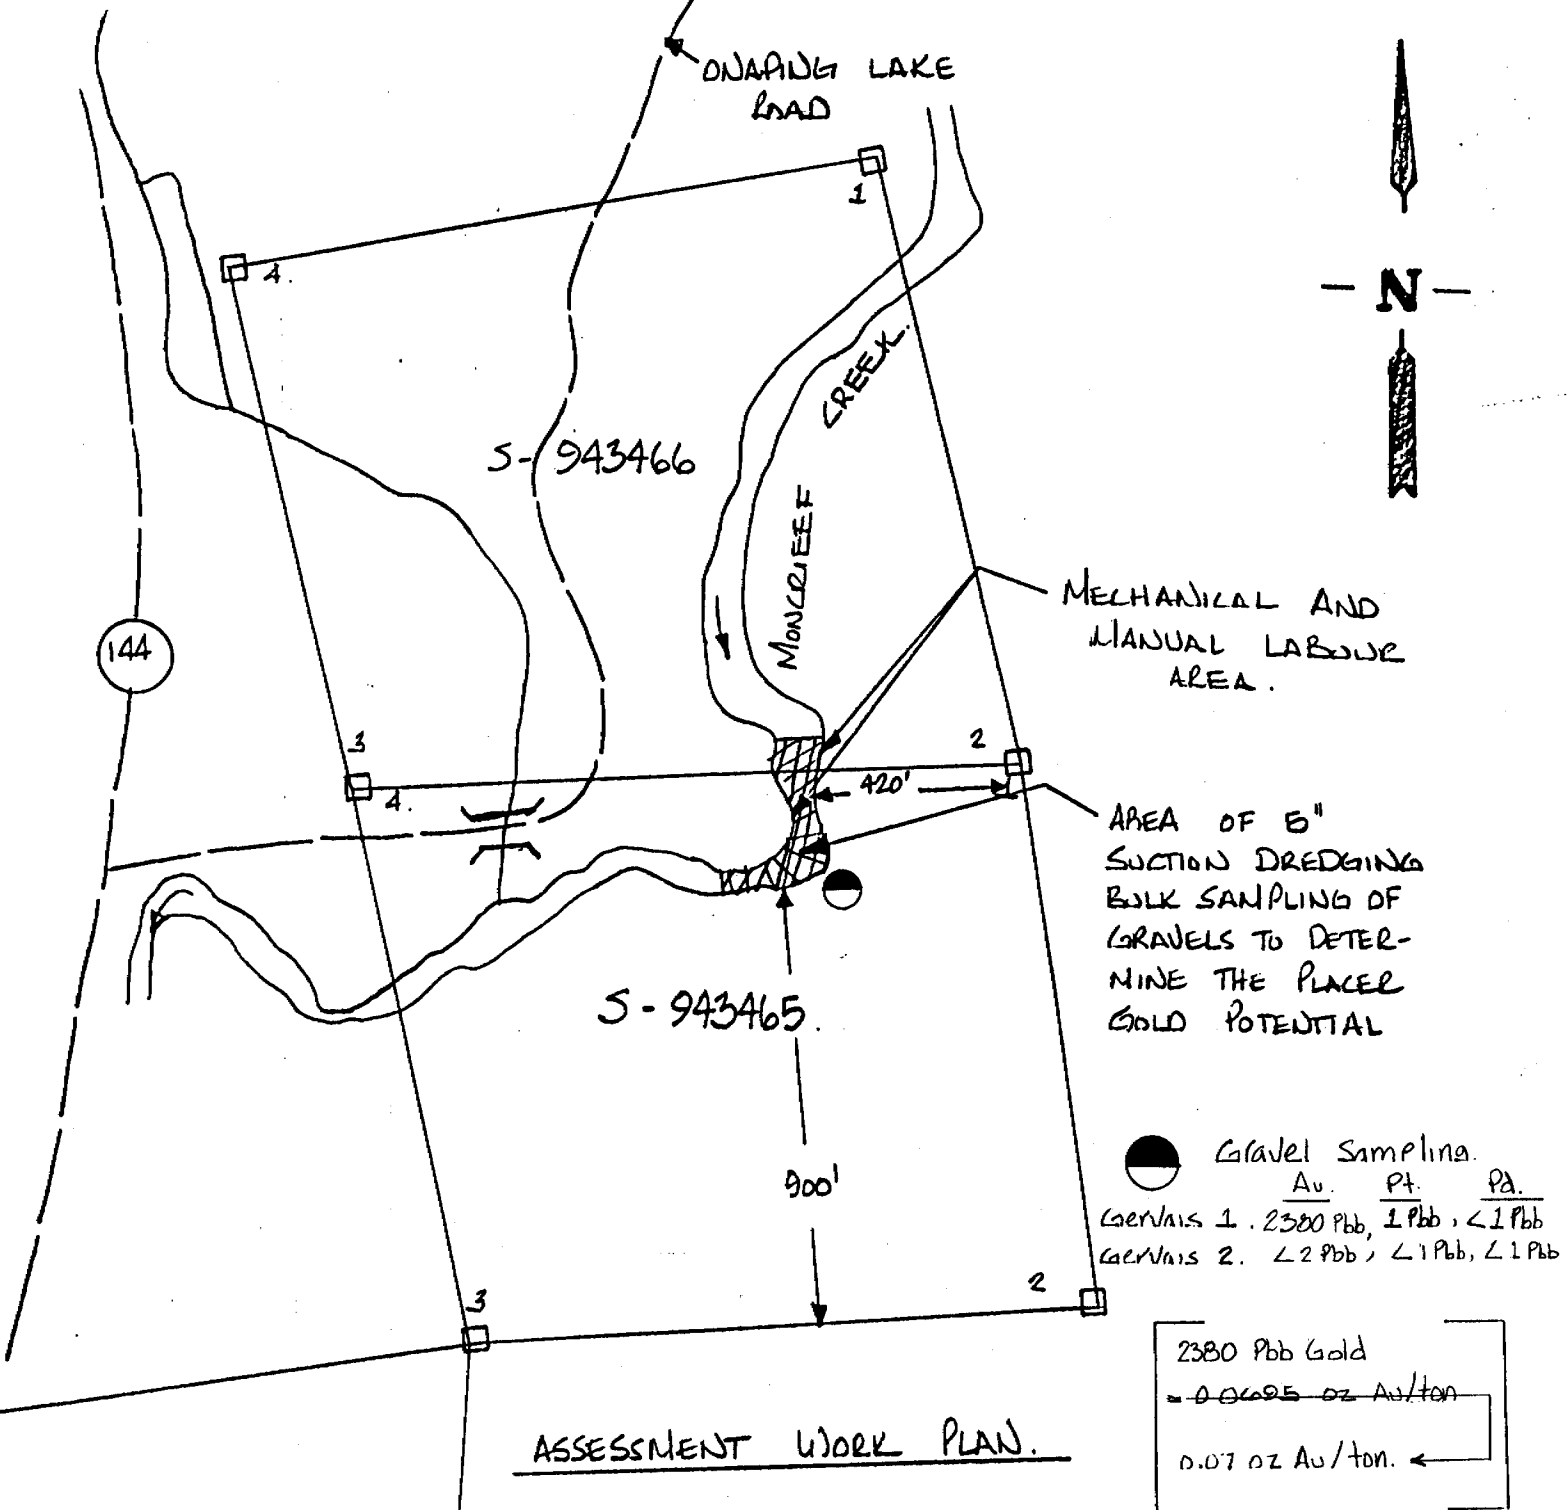 ONAPING LAKE
ROAD
1
4.
N
CREEK.
S-943466
MONCRIEFF
144
MECHANICAL AND
MANUAL LABOUR
AREA.
3
2
4.
420'
AREA OF 5"
SUCTION DREDGING
BULK SAMPLING OF
GRAVELS TO DETER-
MINE THE PLACER
GOLD POTENTIAL
S-943465.
900'
Gravel Sampling.
Au. Pt. Pd.
Gervais 1. 2380 Pbb, 1 Pbb, <1 Pbb
Gervais 2. <2 Pbb, <1 Pbb, <1 Pbb
3
2
2380 Pbb Gold
= 0.0695 oz Au/ton
0.07 oz Au/ton.
ASSESSMENT WORK PLAN.